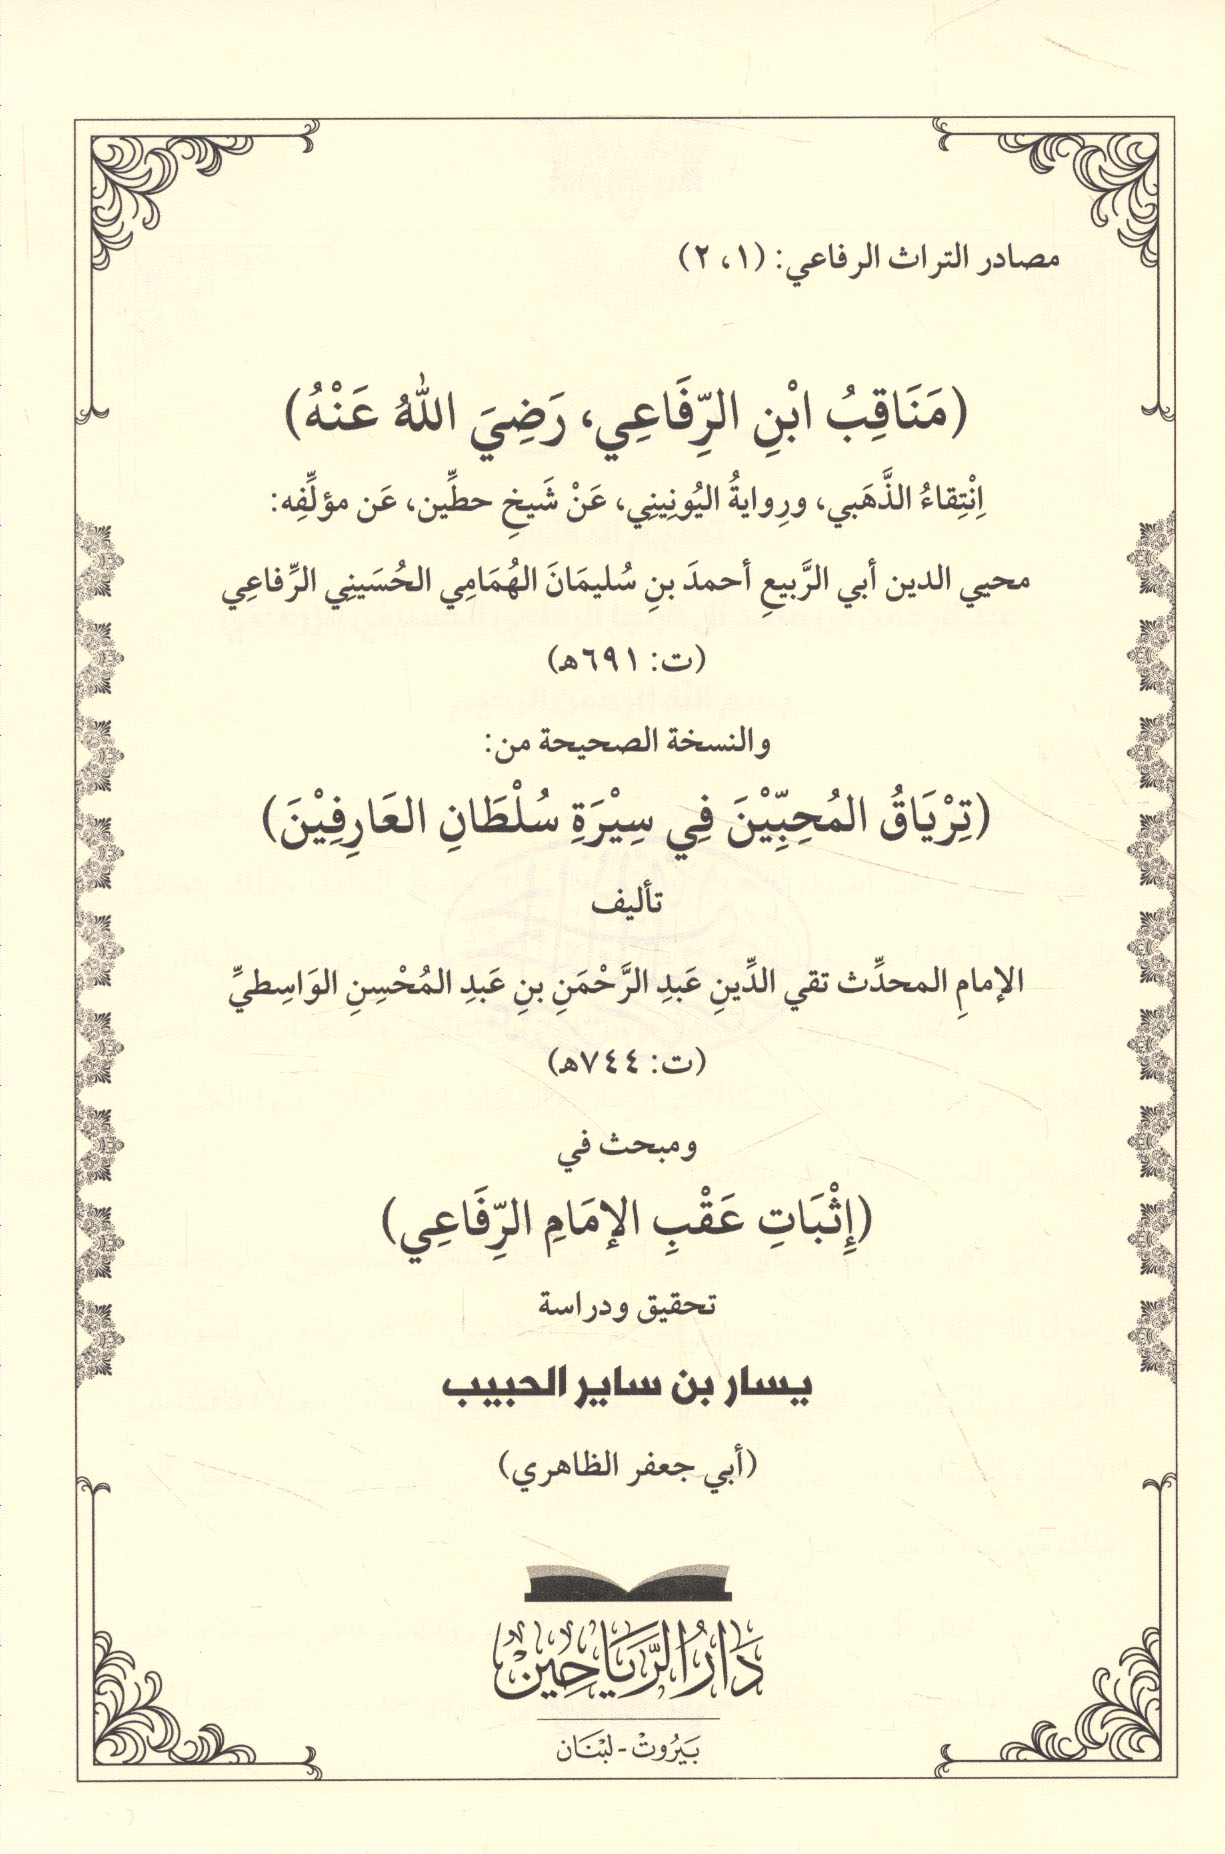 مصادر التراث الرفاعي: (١، ٢)
(مَنَاقِبُ ابْنِ الرِّفَاعِي، رَضِيَ اللهُ عَنْهُ)
اِنْتِقاءُ الذَّهَبي، ورِوايةُ اليُونِيني، عَنْ شَيخِ حطِّين، عَن مؤلِّفِه:
محيي الدين أبي الرَّبيعِ أحمدَ بنِ سُليمَانَ الهُمَامِي الحُسَينِي الرِّفاعِي
(ت: ٦٩١هـ)
والنسخة الصحيحة من:
(تِرْيَاقُ المُحِبِّيْنَ فِي سِيْرَةِ سُلْطَانِ العَارِفِيْنَ)
تأليف
الإمامِ المحدِّث تقي الدِّينِ عَبدِ الرَّحْمَنِ بنِ عَبدِ المُحْسِنِ الوَاسِطيِّ
(ت: ٧٤٤هـ)
ومبحث في
(إِثْبَاتِ عَقْبِ الإمَامِ الرِّفَاعِي)
تحقيق ودراسة
يسار بن ساير الحبيب
(أبي جعفر الظاهري)
دَارُ الرَّيَاحِين
بَيْرُوتْ - لبْنَان